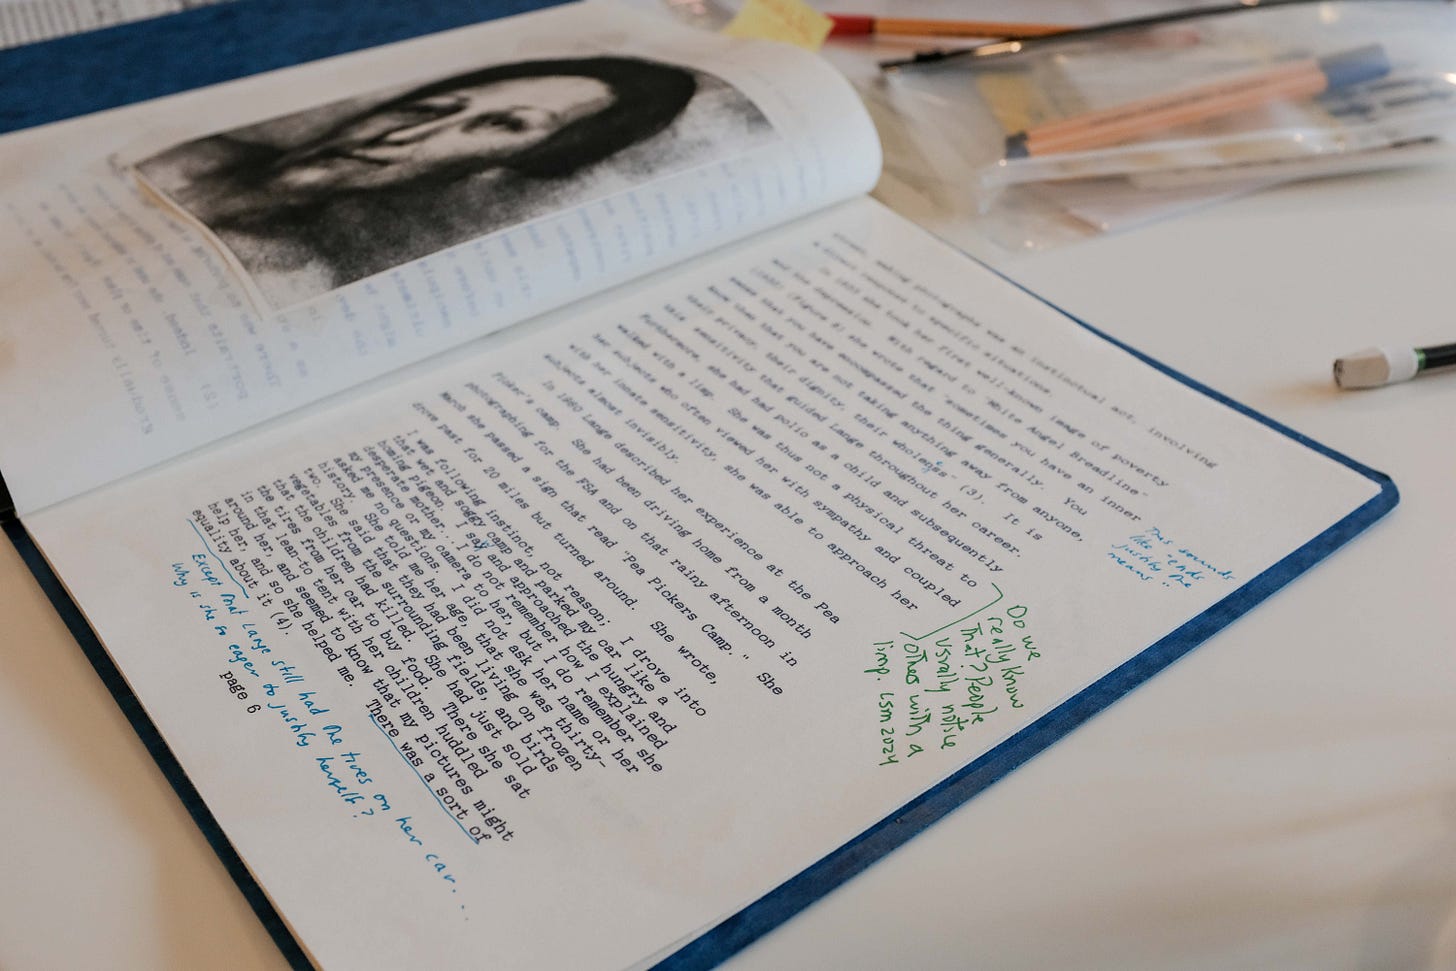 making photographs was an instinctual act, involving
a direct response to specific situations.
In 1933 she took her first well-known image of poverty
and the depression. With regard to "White Angel Breadline"
(1933) (Figure 2) she wrote that "sometimes you have an inner
sense that you have encompassed the thing generally. You
know then that you are not taking anything away from anyone,
their privacy, their dignity, their wholeness" (3). It is
this sensitivity that guided Lange throughout her career.
Furthermore, she had had polio as a child and subsequently
walked with a limp. She was thus not a physical threat to
her subjects who often viewed her with sympathy and coupled
with her innate sensitivity, she was able to approach her
subjects almost invisibly.
In 1960 Lange described her experience at the Pea
Picker's camp. She had been driving home from a month
photographing for the FSA and on that rainy afternoon in
March she passed a sign that read "Pea Pickers Camp." She
drove past for 20 miles but turned around. She wrote,
I was following instinct, not reason; I drove into
that wet and soggy camp and parked my car like a
homing pigeon. I say and approached the hungry and
desperate mother...I do not remember how I explained
my presence or my camera to her, but I do remember she
asked me no questions. I did not ask her name or her
history. She told me her age, that she was thirty-
two. She said that they had been living on frozen
vegetables from the surrounding fields, and birds
that the children had killed. She had just sold
the tires from her car to buy food. There she sat
in that lean-to tent with her children huddled
around her, and seemed to know that my pictures might
help her, and so she helped me. There was a sort of
equality about it (4).
page 6
This sounds
like "ends
justify the
means.
Do we
really know
that? People
usually notice
others with a
limp. LSM 2024
Except that Lange still had the tires on her car...
Why is she so eager to justify herself?